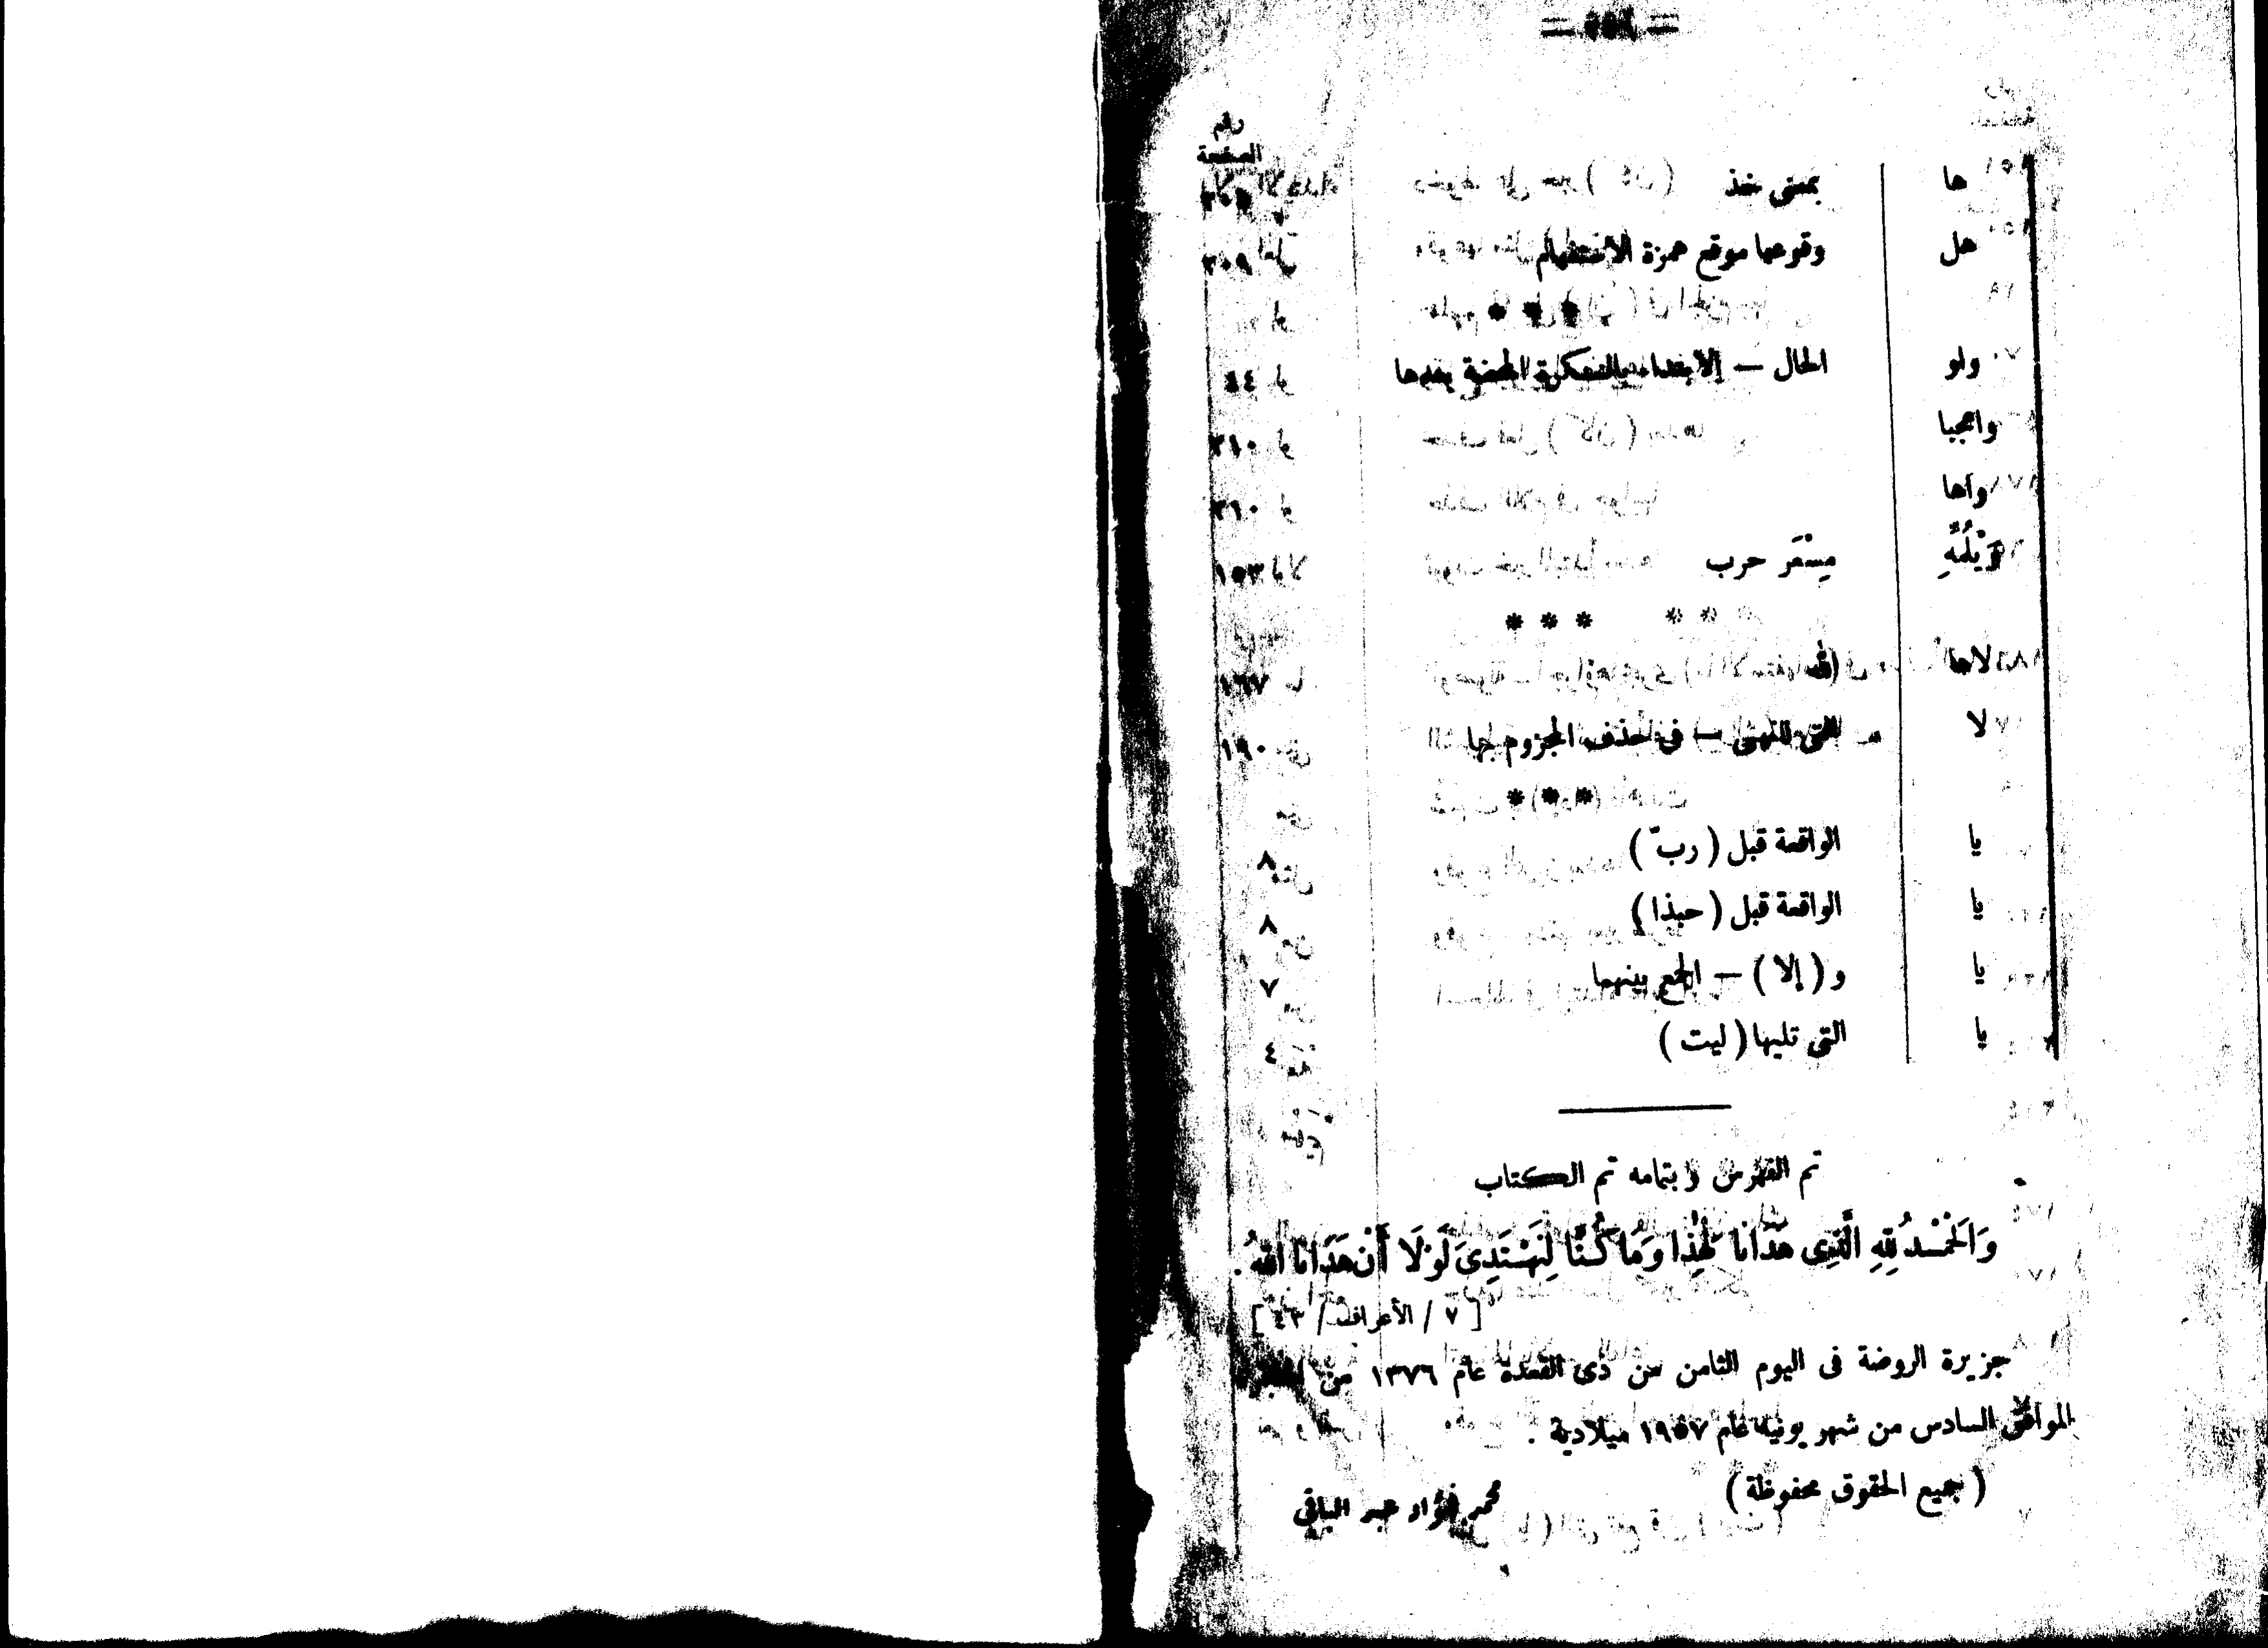 رقم
الصفحة
ها بمعنى خذ
هل وقوعها موقع همزة الاستفهام
* * *
ولو الحال — الابتداء بالنكرة المحضة بعدها ٤٤
واعجبا ٢١٠
واها ٢١٠
وَيْلُمِّهِ مِسْعَر حرب
* * *
لاها الله ١٦٧
لا التى للنهى — فى حذف المجزوم بها ١٩٠
* * *
يا الواقعة قبل ( ربّ ) ٨
يا الواقعة قبل ( حبذا ) ٨
يا و ( إلا ) — الجمع بينهما ٧
يا التى تليها ( ليت ) ٤
تم الفهرس وبتمامه تم الكتاب
وَالْحَمْدُ لِلّٰهِ الَّذِى هَدَانَا لِهٰذَا وَمَا كُنَّا لِنَهْتَدِىَ لَوْلَا أَنْ هَدَانَا اللهُ .
[ ٧ / الأعراف / ٤٣ ]
جزيرة الروضة فى اليوم الثامن من ذى القعدة عام ١٣٧٦ من
الموافق السادس من شهر يونيه عام ١٩٥٧ ميلادية .
( جميع الحقوق محفوظة ) محمد فؤاد عبد الباقى